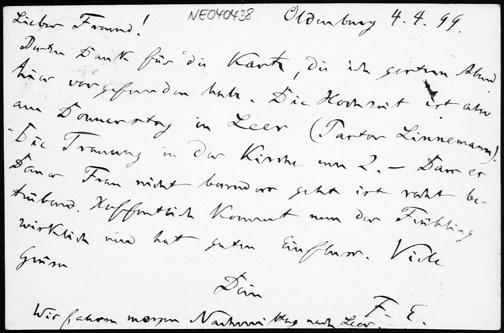 Lieber Freund! NE040438 Oldenburg 4.4.99.
Besten Dank für die Karte, die ich gestern Abend
hier vorgefunden habe. Die Hochzeit ist aber
am Donnerstag in Leer (Pastor Linnemann).
Die Trauung in der Kirche um 2. – Dass es
Deiner Frau nicht besonders geht ist recht be-
trübend. Hoffentlich kommt nun der Frühling
wirklich und hat guten Einfluss. Viele
Grüsse
Dein
F. E.
Wir fahren morgen Nachmittag nach Leer.